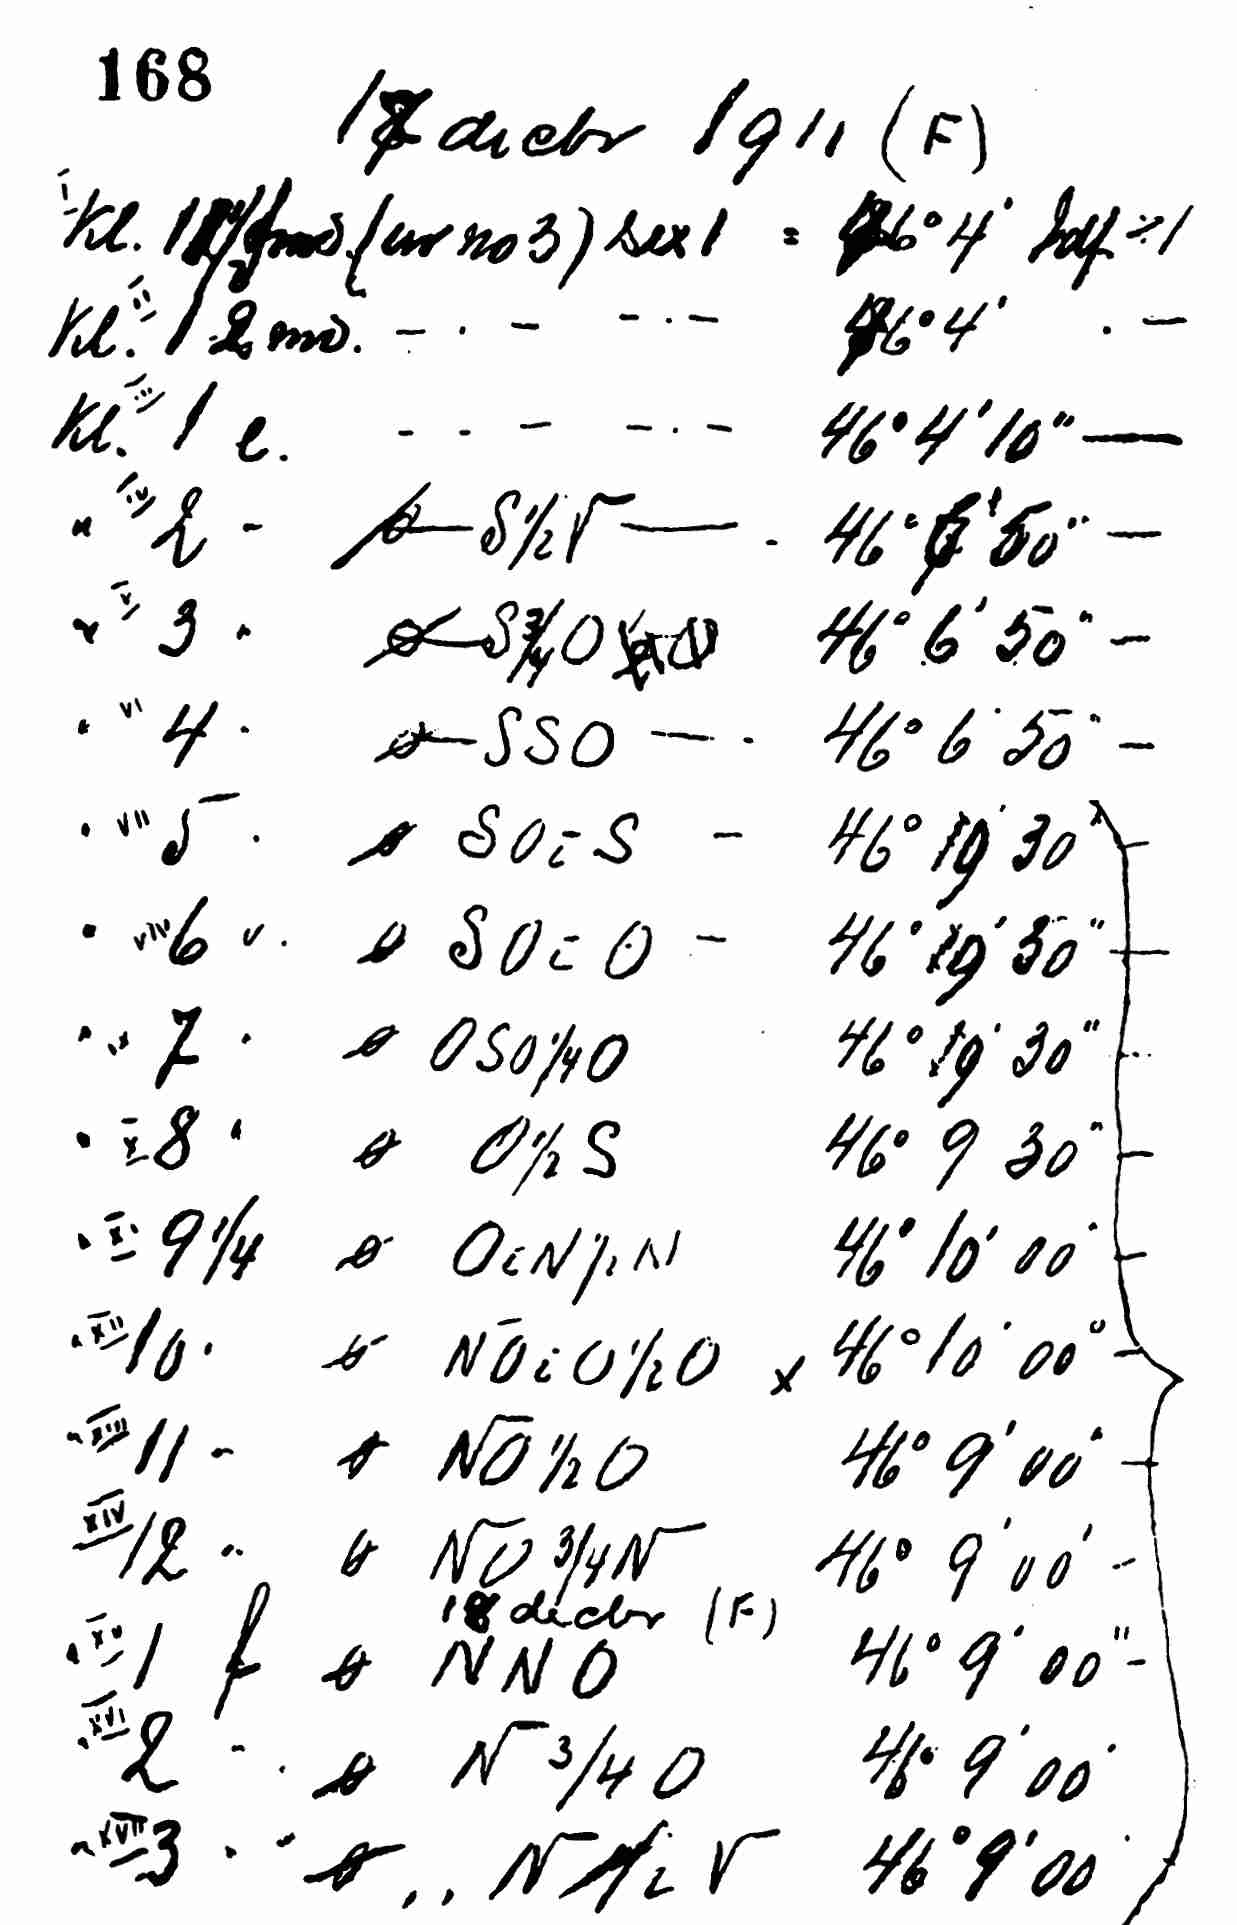 168
17 decbr 1911 (F)
I Kl. 11 fmd. (ur no 3) sex 1 = 46° 4' Indf ÷ 1
Kl. II 12 md. — . — — . — 46° 4' . —
Kl. III 1 e. - - — — . — 46° 4' 10" —
" IV 2 - S 1/2 V — . 46° 50" —
" V 3 " S 3/4 O 46° 6' 50" —
" VI 4 " SSO — . 46° 6' 50" —
" VII 5 " SO i S — 46° 9' 30" —
" VIII 6 " SO i O — 46° 9' 30" —
" IX 7 " OSO 1/4 O 46° 9' 30" —
" X 8 " O 1/2 S 46° 9' 30" —
" XI 9 1/4 O i N 1/2 N 46° 10' 00" —
" XII 10 " NO i O 1/2 O x 46° 10' 00" —
" XIII 11 - NO 1/2 O 46° 9' 00" —
XIV 12 " NO 3/4 N 46° 9' 00" -
18 decbr (F)
" XV 1 f NNO 46° 9' 00" -
" XVI 2 " N 3/4 O 46° 9' 00"
" XVII 3 " " N 1/2 V 46° 9' 00